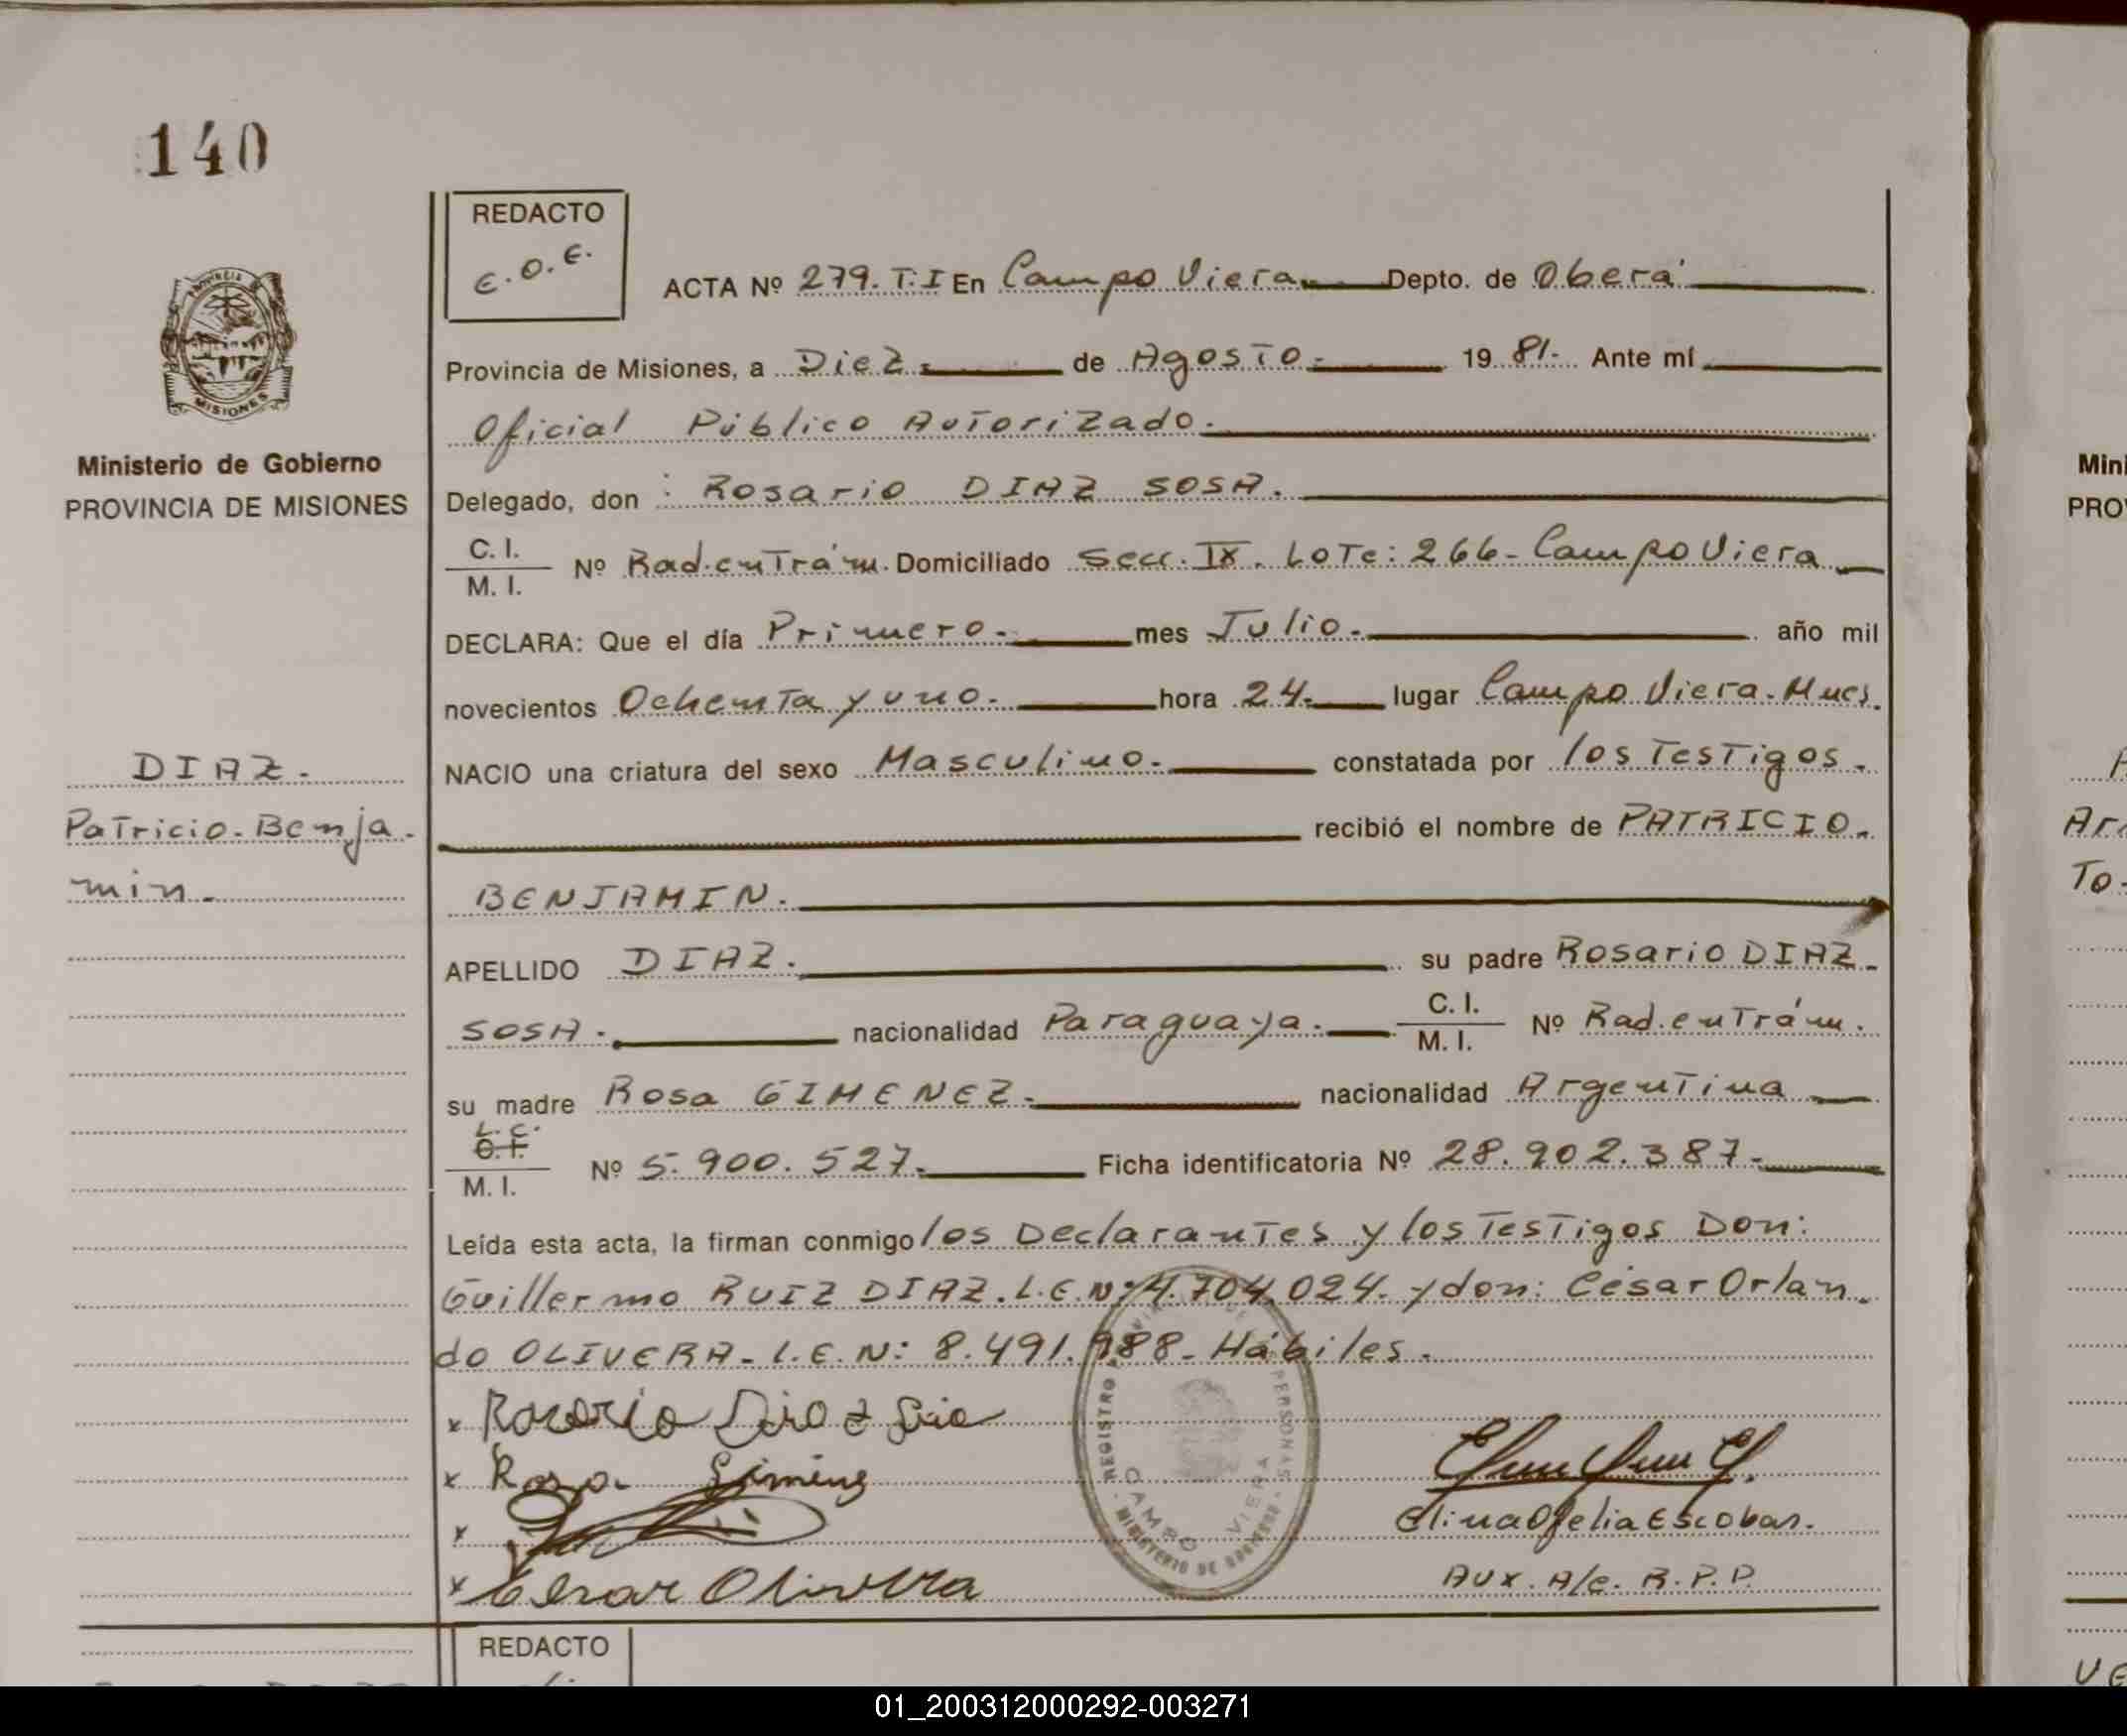 140
REDACTO
E.O.E.
ACTA Nº 279.T.I En Campo Viera. Depto. de Oberá
PROVINCIA
MISIONES
Provincia de Misiones, a Diez. de Agosto.- 19 81.- Ante mí
Oficial Público Autorizado.
Ministerio de Gobierno
PROVINCIA DE MISIONES
Delegado, don : Rosario DIAZ SOSA.
C. I.
M. I. Nº Rad.en Trám. Domiciliado Secc. IX. Lote: 266- Campo Viera
DECLARA: Que el día Primero.- mes Julio.- año mil
novecientos Ochenta y uno.- hora 24.- lugar Campo Viera-Mnes.
NACIO una criatura del sexo Masculino.- constatada por los Testigos.-
recibió el nombre de PATRICIO.-
BENJAMIN.
DIAZ.-
Patricio-Benja-
min.-
APELLIDO DIAZ. su padre Rosario DIAZ-
SOSA. nacionalidad Paraguaya.- C. I.
M. I. Nº Rad.en Trám.
su madre Rosa GIMENEZ.- nacionalidad Argentina
L.C.
C.I.
M. I. Nº 5.900.527.- Ficha identificatoria Nº 28.902.387.-
Leída esta acta, la firman conmigo los Declarantes y los Testigos Don:
Guillermo RUIZ DIAZ.L.E.Nº:4.704.024.- y don: César Orlan-
do OLIVERA-L.E.N: 8.491.988- Hábiles.-
x Rosario Diaz Sosa
x Rosa Gimenez
x
x Cesar Olivera
REGISTRO PROVINCIAL DE PERSONAS
CAMPO VIERA
MINISTERIO DE GOBIERNO
Elina Ofelia Escobar.
Aux. A/c. R.P.P.
REDACTO
Mini
PRO
Ar
To-
01_200312000292-003271